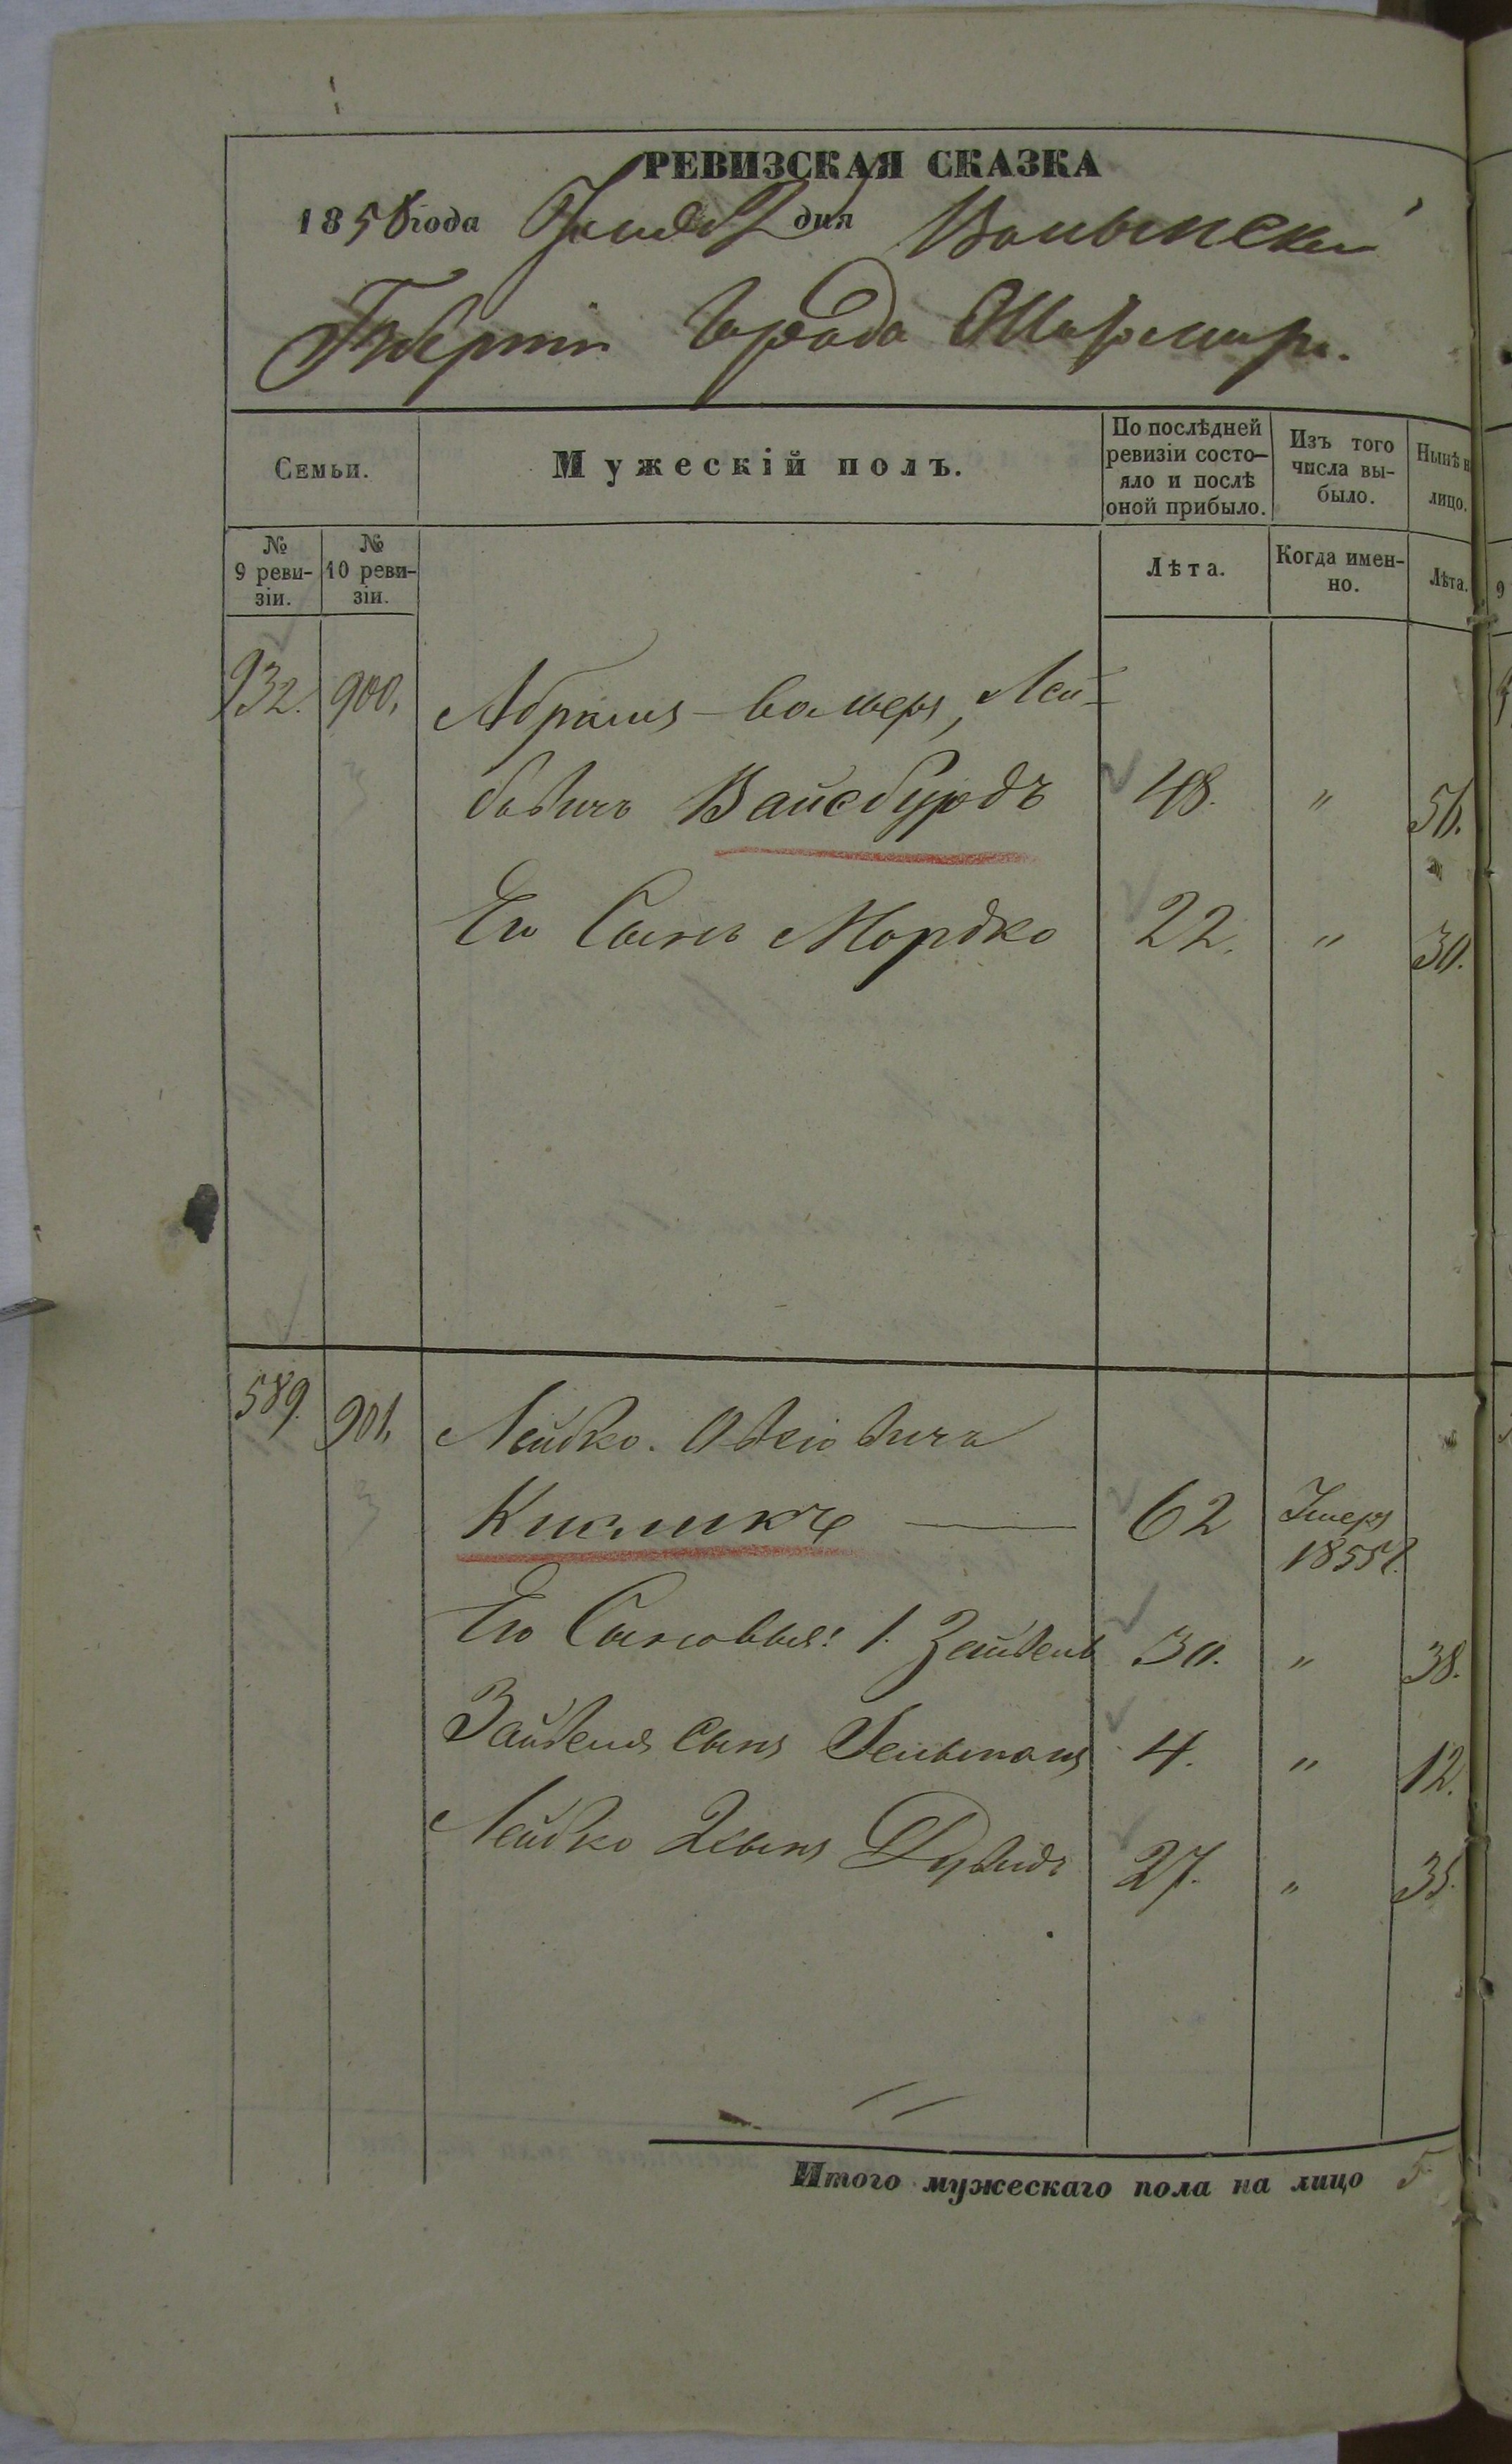 РЕВИЗСКАЯ СКАЗКА
1858 года дня Волынской
Губерніи города Житомира.
Семьи.
Мужескій полъ.
По послѣдней ревизіи состо-
яло и послѣ оной прибыло.
Изъ того числа вы-
было.
Нынѣ н
лицо.
№ 9 реви-
зіи.
№ 10 реви-
зіи.
Лѣта.
Когда имен-
но.
Лѣта.
932. 900. Абрамъ Лей-
бовичъ Вайсбурдъ 48. " 56.
Его Сынъ Мордко 22. " 30.
589. 901. Лейбко
62 Умеръ
1855 г.
Его Сыновья: 1. Зайвель 30. " 38.
Зайвеля сынъ 4. " 12.
Лейбко 2 сынъ Дувидъ 27. " 35.
Итого мужескаго пола на лицо 5